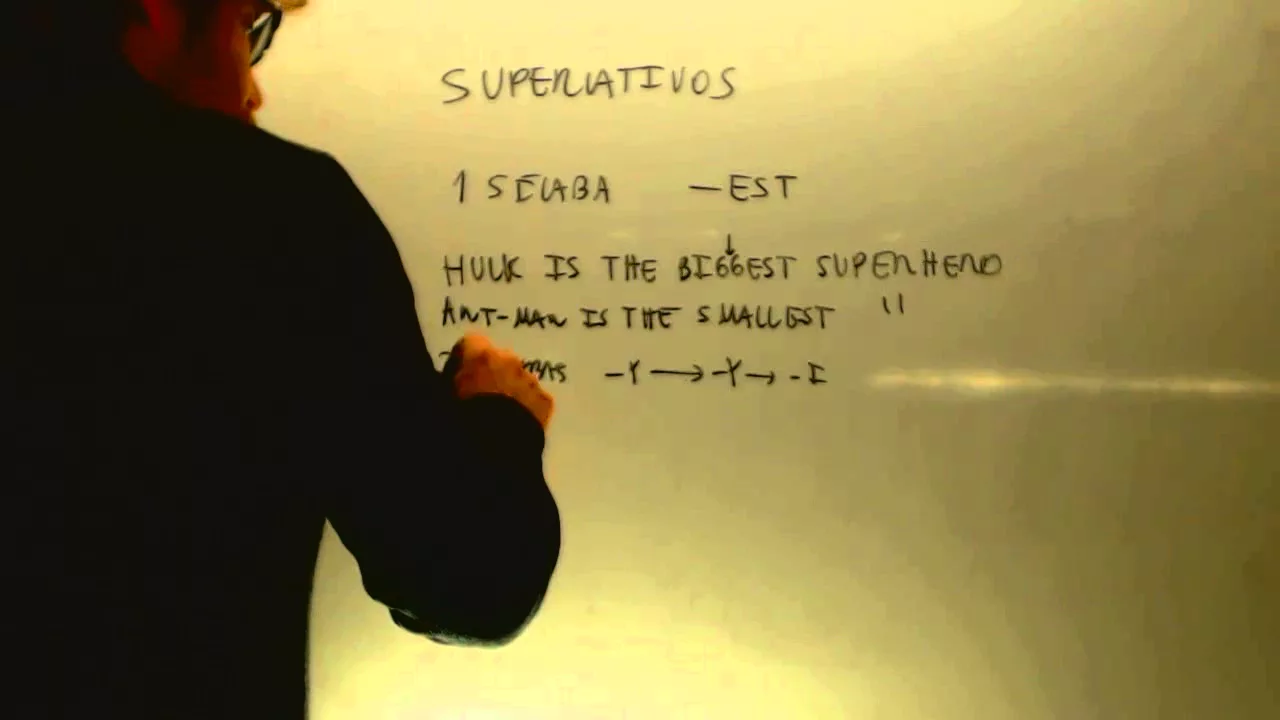 SUPERLATIVOS
1 SÍLABA —EST
↓
HULK IS THE BIGGEST SUPERHERO
ANT-MAN IS THE SMALLEST "
-Y → -Y → -I